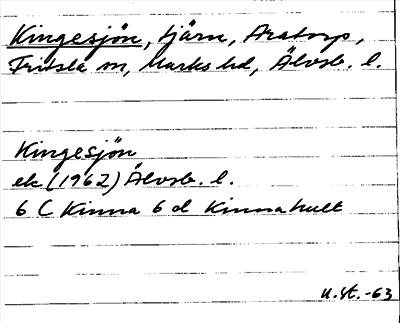 Kingesjön, tjärn, Aratorp,
Fritsla sn, Marks hd, Älvsb. l.
Kingesjön
ek (1962) Älvsb. l.
6 C Kinna 6 d Kinnahult
U.St.-63